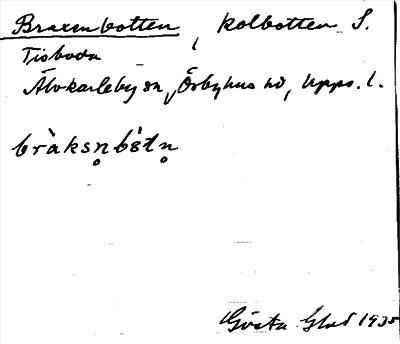 Braxenbotten, kolbotten S.
Tisboda
Älvkarleby sn, Örbyhus hd, Upps. l.
bràksn̥bòtn̥
Gösta Glad 1935